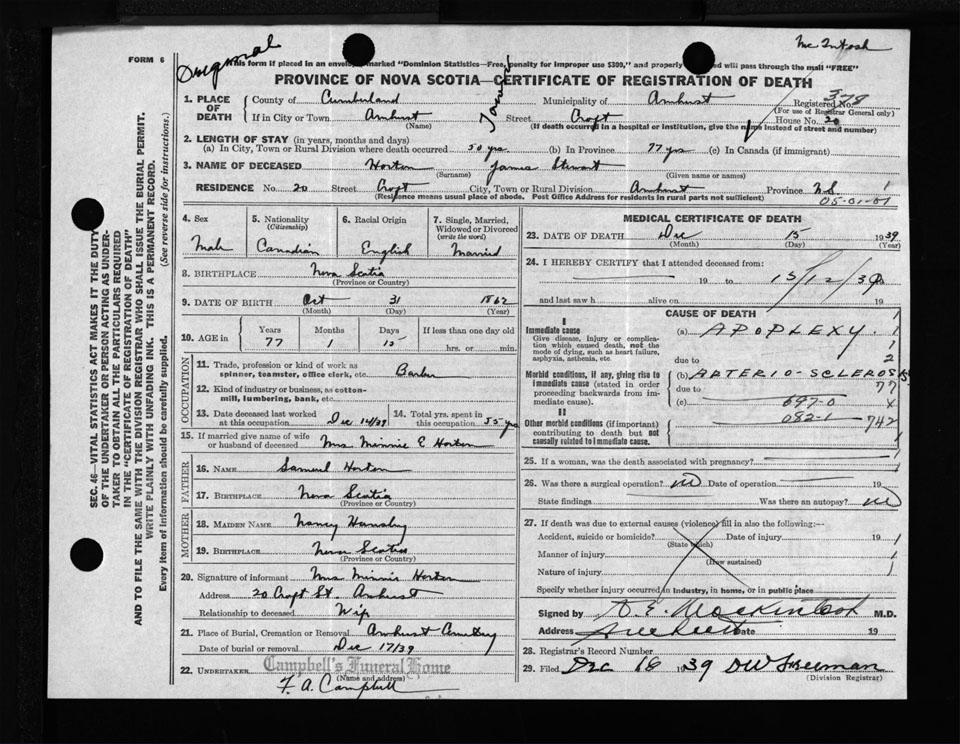 McIntosh
FORM 6
Original
This form if placed in an envelope marked "Dominion Statistics—Free, penalty for improper use $300," and properly will pass through the mail "FREE"
PROVINCE OF NOVA SCOTIA—CERTIFICATE OF REGISTRATION OF DEATH
378
1. PLACE OF DEATH
County of Cumberland Municipality of Amherst Registered No.
(For use of Registrar General only)
If in City or Town Amherst Street Croft House No. 20
(Name) (If death occurred in a hospital or institution, give the name instead of street and number)
2. LENGTH OF STAY (in years, months and days)
(a) In City, Town or Rural Division where death occurred 50 yrs. (b) In Province 77 yrs (c) In Canada (if immigrant)
3. NAME OF DECEASED Horton James Stewart
(Surname) (Given name or names)
RESIDENCE No. 20 Street Croft City, Town or Rural Division Amherst Province N.S 1
(Residence means usual place of abode. Post Office Address for residents in rural parts not sufficient) 05-01-01
4. Sex
Male
5. Nationality
(Citizenship)
Canadian
6. Racial Origin
English
7. Single, Married, Widowed or Divorced
(write the word)
Married
8. BIRTHPLACE Nova Scotia
(Province or Country)
9. DATE OF BIRTH Oct 31 1862
(Month) (Day) (Year)
10. AGE in
Years Months Days If less than one day old
77 1 15 hrs. or min.
OCCUPATION
11. Trade, profession or kind of work as
spinner, teamster, office clerk, etc. Barber
12. Kind of industry or business, as cotton-
mill, lumbering, bank, etc.
13. Date deceased last worked
at this occupation Dec 14/39
14. Total yrs. spent in
this occupation 55 yrs
15. If married give name of wife
or husband of deceased Mrs Minnie E Horton
FATHER
16. NAME Samuel Horton
17. BIRTHPLACE Nova Scotia
(Province or Country)
MOTHER
18. MAIDEN NAME Nancy
19. BIRTHPLACE Nova Scotia
(Province or Country)
20. Signature of informant Mrs Minnie Horton
Address 20 Croft St. Amherst
Relationship to deceased Wife
21. Place of Burial, Cremation or Removal Amherst Cemetery
Date of burial or removal Dec 17/39
22. UNDERTAKER Campbell's Funeral Home
(Name and address)
F. A. Campbell
MEDICAL CERTIFICATE OF DEATH
23. DATE OF DEATH Dec 15 1939
(Month) (Day) (Year)
24. I HEREBY CERTIFY that I attended deceased from:
19 to 15/12/39
and last saw h alive on 19
CAUSE OF DEATH
I
Immediate cause (a) APOPLEXY. 1
Give disease, injury or complica-
tion which caused death, not the 1
mode of dying, such as heart failure,
asphyxia, asthenia, etc. due to 2
Morbid conditions, if any, giving rise to (b) ARTERIO-SCLEROSIS
immediate cause (stated in order due to 77
proceeding backwards from im-
mediate cause). (c) 697-0 x
II 082-1
Other morbid conditions (if important) 742
contributing to death but not
causally related to immediate cause. 1
25. If a woman, was the death associated with pregnancy?
26. Was there a surgical operation? no Date of operation 19
State findings Was there an autopsy? no
27. If death was due to external causes (violence) fill in also the following:—
Accident, suicide or homicide? Date of injury 19 1
(State which)
Manner of injury 1
(How sustained)
Nature of injury 1
Specify whether injury occurred in industry, in home, or in public place
Signed by D. E. Mackintosh M.D.
Address Date 19
28. Registrar's Record Number
29. Filed Dec 18 1939 DW Freeman
(Division Registrar)
SEC. 46—VITAL STATISTICS ACT MAKES IT THE DUTY
OF THE UNDERTAKER OR PERSON ACTING AS UNDER-
TAKER TO OBTAIN ALL THE PARTICULARS REQUIRED
IN THE "CERTIFICATE OF REGISTRATION OF DEATH"
AND TO FILE THE SAME WITH THE DIVISION REGISTRAR WHO SHALL ISSUE THE BURIAL PERMIT.
WRITE PLAINLY WITH UNFADING INK. THIS IS A PERMANENT RECORD.
Every item of information should be carefully supplied. (See reverse side for instructions.)